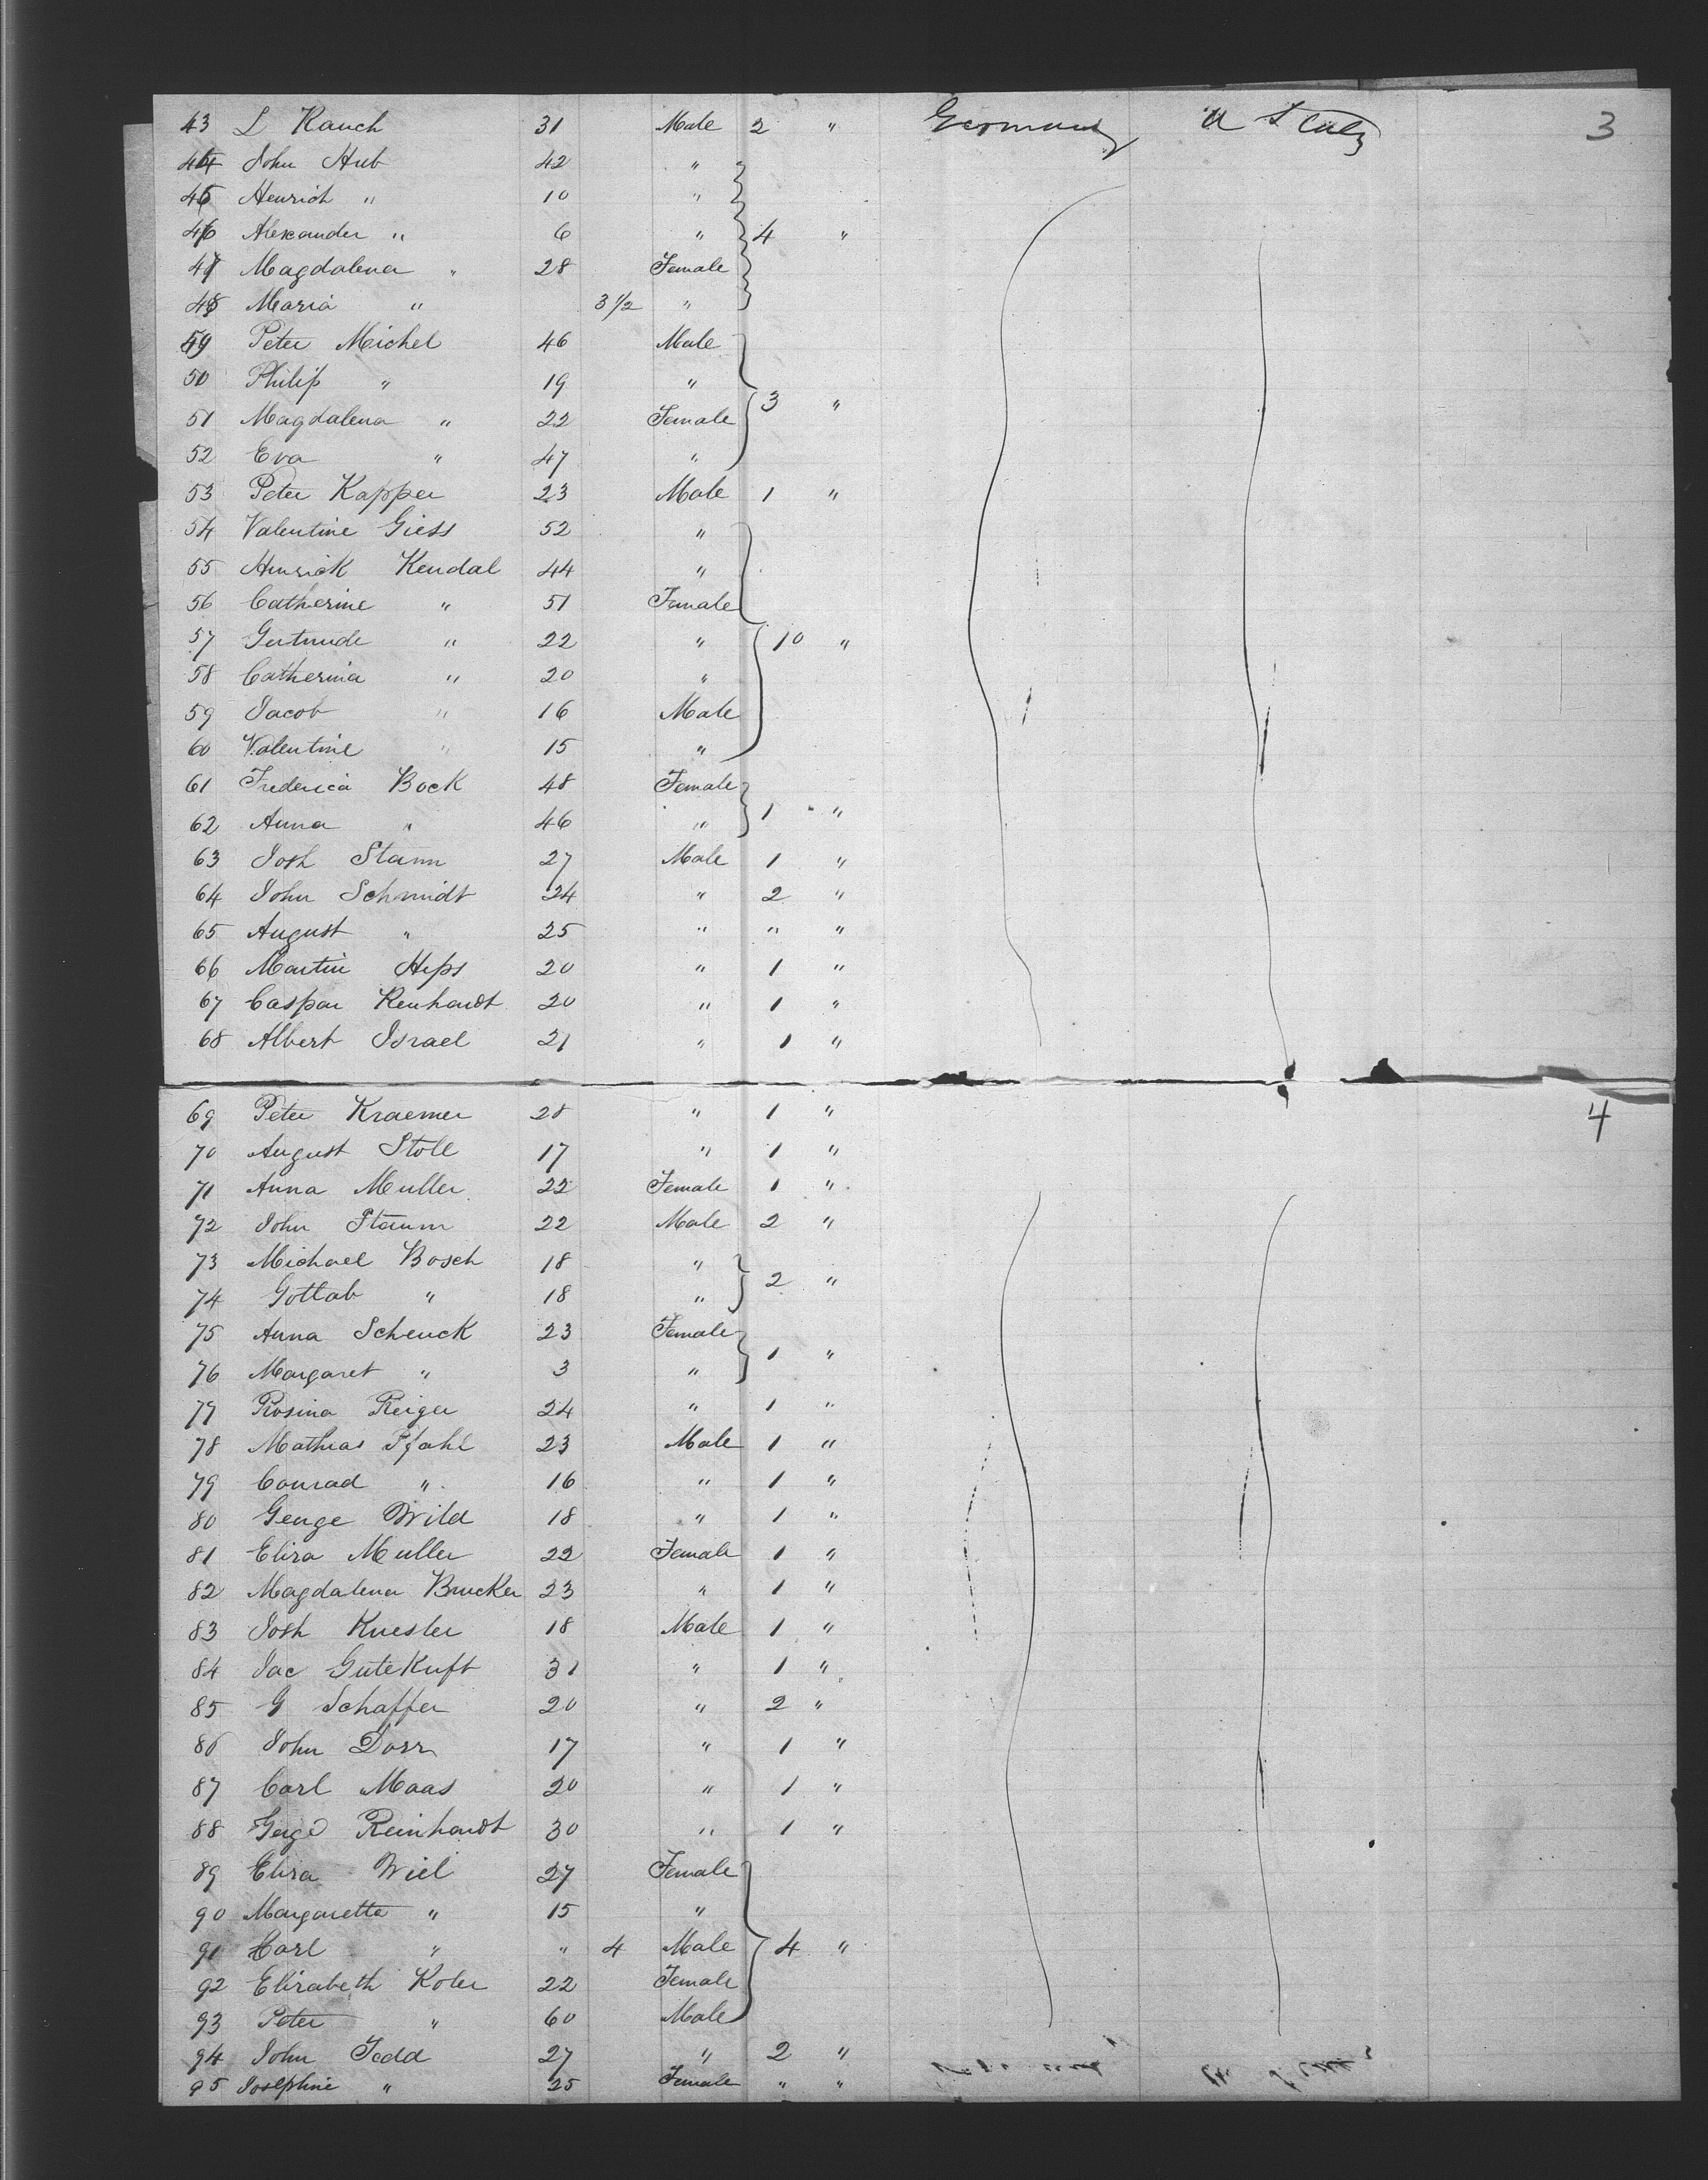 43 L Rauch 31 Male 2 " Germany U States 3
44 John Hub 42 "
45 Henrich " 10 "
46 Alexander " 6 " 4 "
47 Magdalena " 28 Female
48 Maria " 3 1/2 "
49 Peter Michel 46 Male
50 Philip " 19 "
51 Magdalena " 22 Female 3 "
52 Eva " 47 "
53 Peter Kapper 23 Male 1 "
54 Valentine Giess 52 "
55 Henrick Kendal 44 "
56 Catherine " 51 Female
57 Gertrude " 22 " 10 "
58 Catherina " 20 "
59 Jacob " 16 Male
60 Valentine " 15 "
61 Frederica Bock 48 Female
62 Anna " 46 " 1 "
63 Josh Stamm 27 Male 1 "
64 John Schmidt 24 " 2 "
65 August " 25 " " "
66 Martin Heps 20 " 1 "
67 Caspar Renhardt 20 " 1 "
68 Albert Israel 21 " 1 "
69 Peter Kraemer 28 " 1 " 4
70 August Stoll 17 " 1 "
71 Anna Muller 22 Female 1 "
72 John Stamm 22 Male 2 "
73 Michael Bosch 18 "
74 Gottab " 18 " 2 "
75 Anna Schenck 23 Female
76 Margaret " 3 " 1 "
77 Rosina Reiger 24 " 1 "
78 Mathias Pfahl 23 Male 1 "
79 Conrad " 16 " 1 "
80 George Wild 18 " 1 "
81 Eliza Muller 22 Female 1 "
82 Magdalena Brucker 23 " 1 "
83 Josh Kuesler 18 Male 1 "
84 Jac Gutekuft 31 " 1 "
85 G Schaffer 20 " 2 "
86 John Dorr 17 " 1 "
87 Carl Maas 20 " 1 "
88 Reinhardt 30 " 1 "
89 Eliza Wiel 27 Female
90 Margaretta " 15 "
91 Carl " " 4 Male 4 "
92 Elizabeth Koler 22 Female
93 Peter " 60 Male
94 John Todd 27 " 2 "
95 Josephine " 25 Female " "